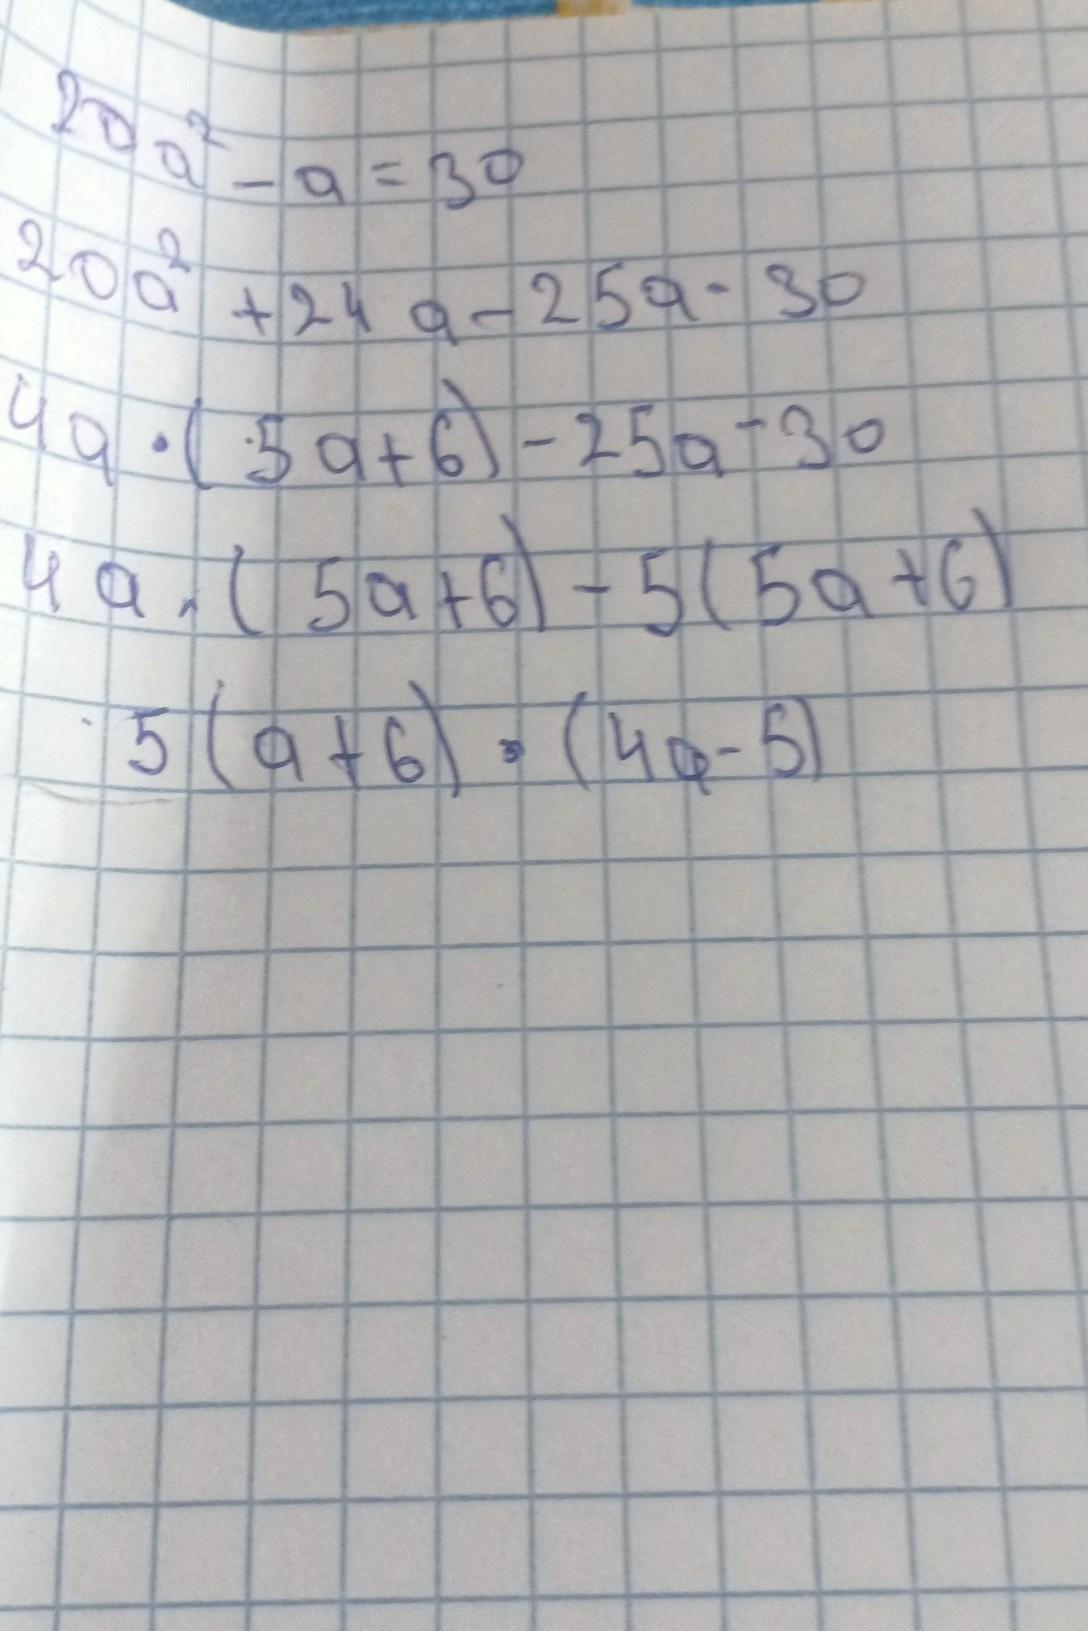 20a² - a = 30
20a² + 24a - 25a - 30
4a · (5a + 6) - 25a - 30
4a · (5a + 6) - 5(5a + 6)
5(a + 6) · (4a - 5)